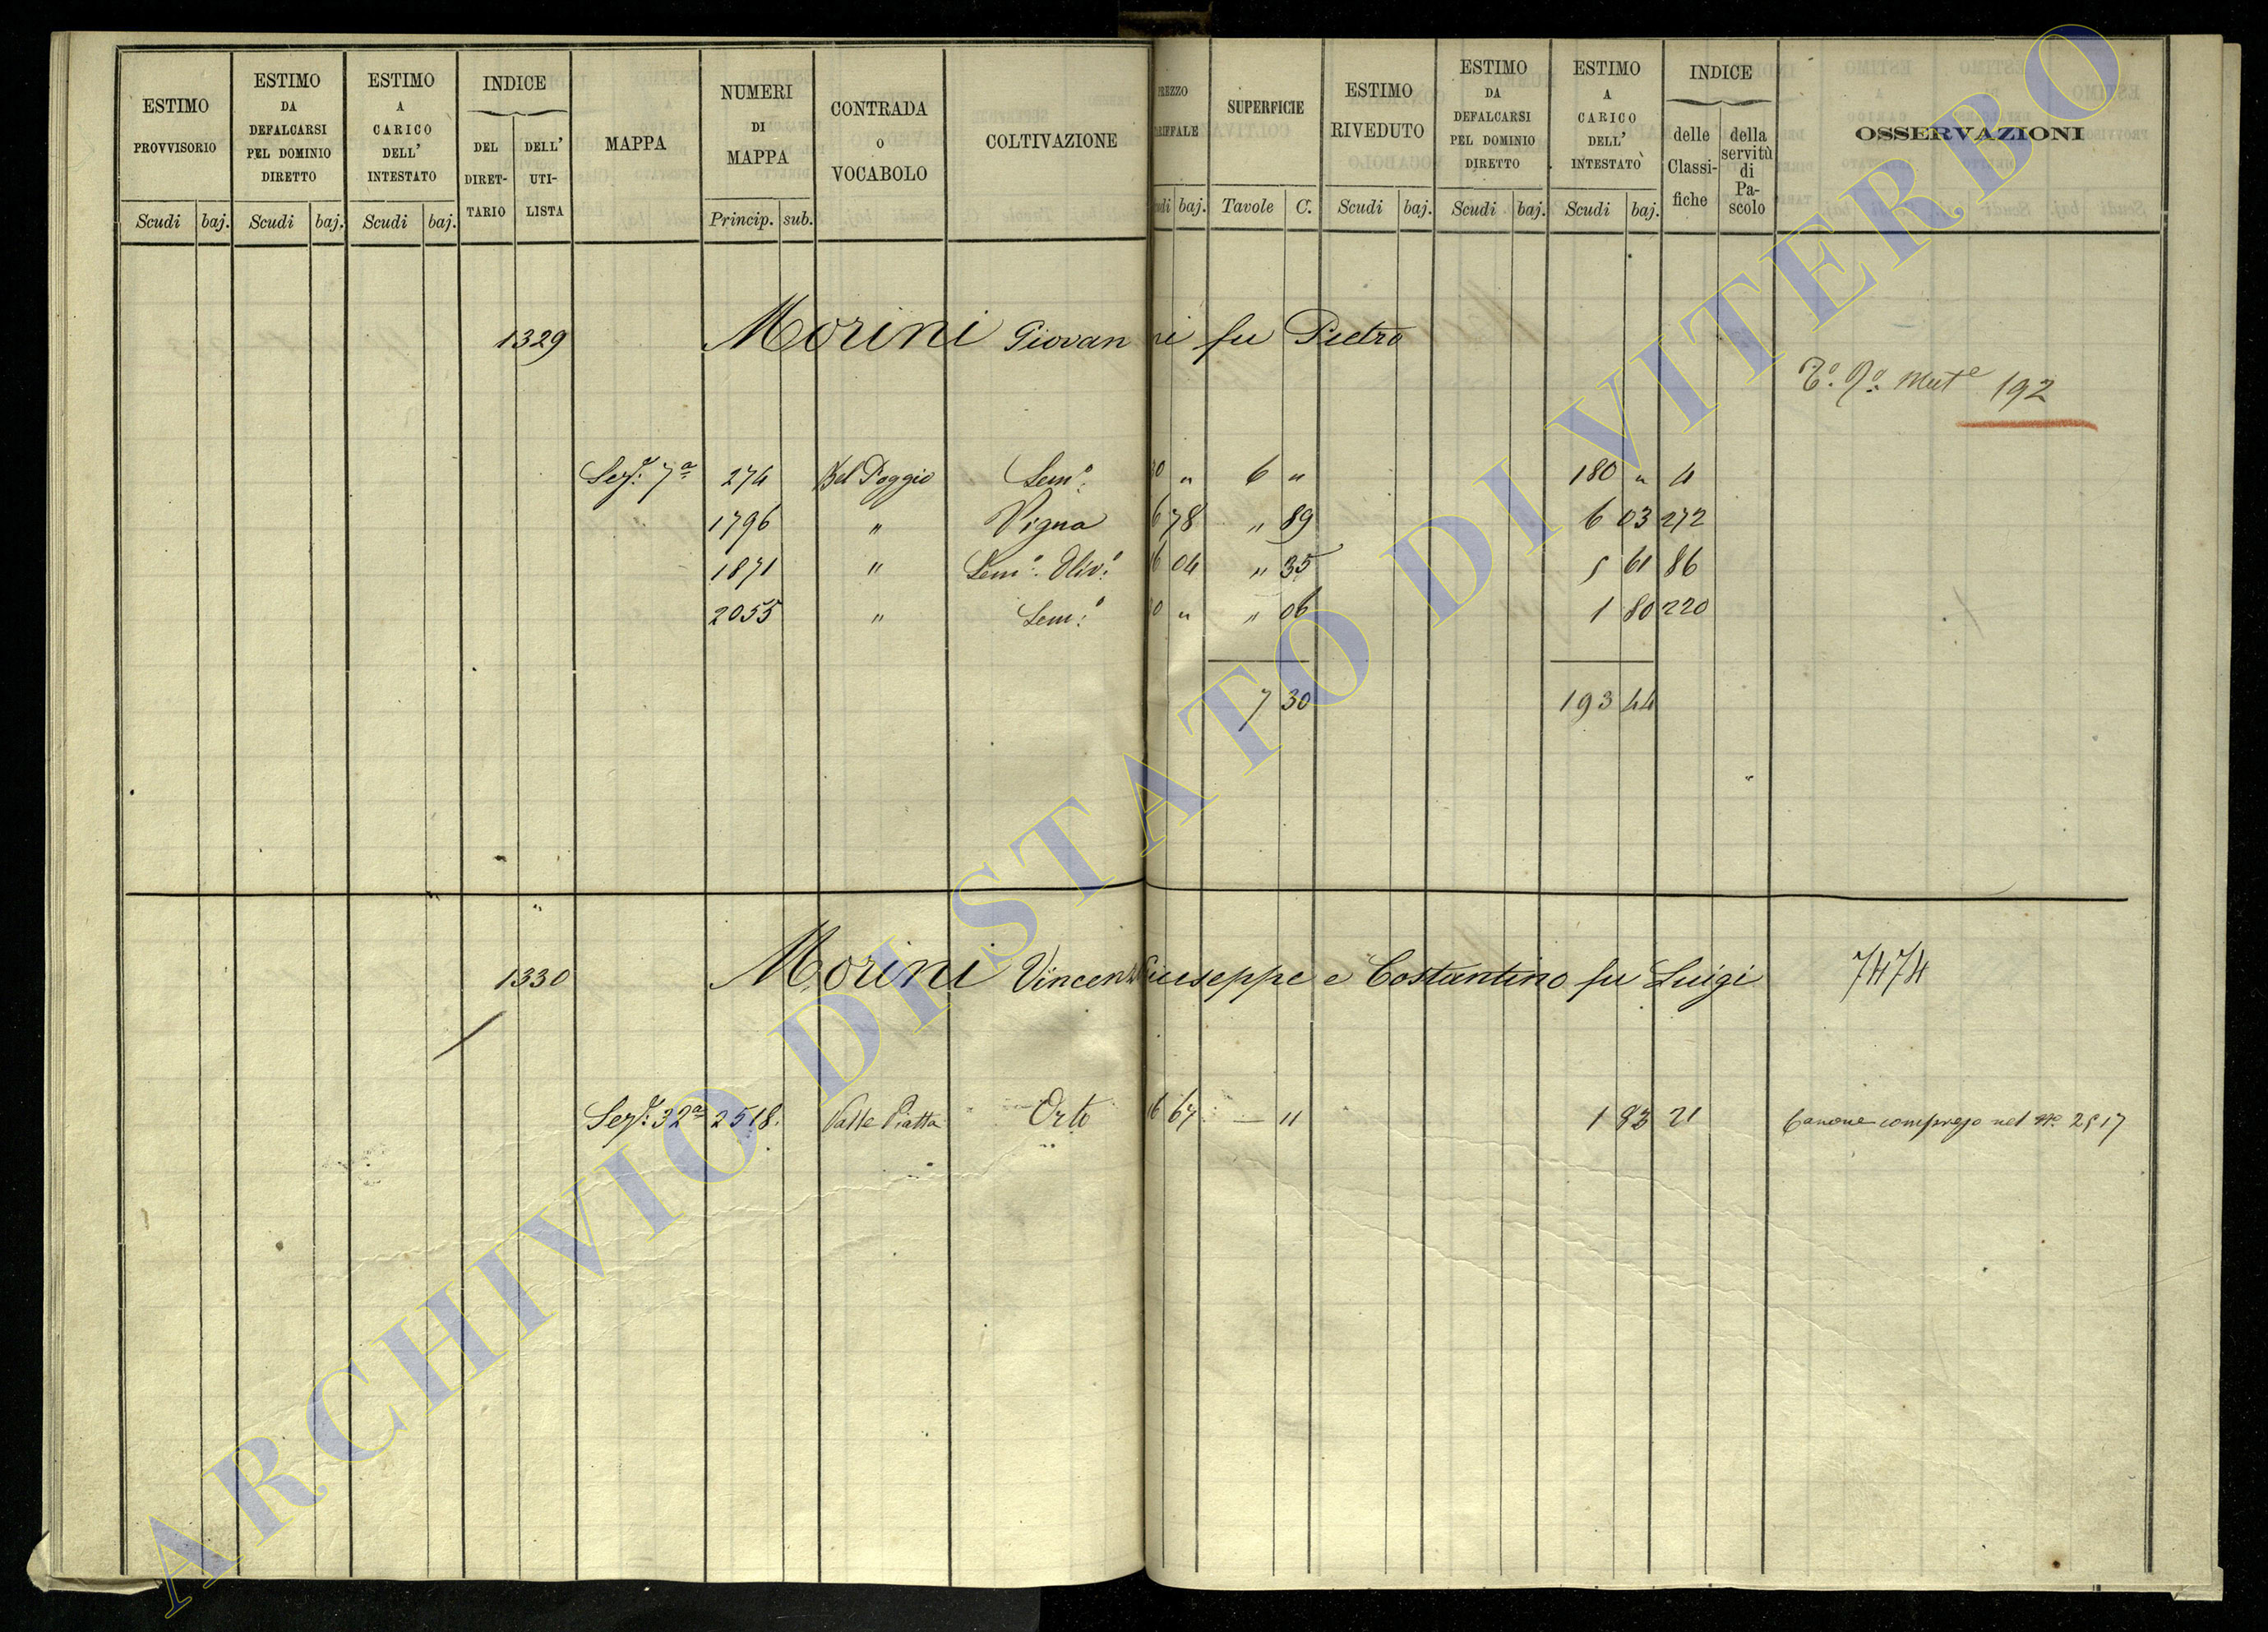 ESTIMO PROVVISORIO
Scudi baj.
ESTIMO DA DEFALCARSI PEL DOMINIO DIRETTO
Scudi baj.
ESTIMO A CARICO DELL' INTESTATO
Scudi baj.
INDICE
DEL DIRET-TARIO
DELL' UTI-LISTA
MAPPA
NUMERI DI MAPPA
Princip. sub.
CONTRADA O VOCABOLO
COLTIVAZIONE
Scudi baj.
SUPERFICIE
Tavole C.
ESTIMO RIVEDUTO
Scudi baj.
ESTIMO DA DEFALCARSI PEL DOMINIO DIRETTO
Scudi baj.
ESTIMO A CARICO DELL' INTESTATO
Scudi baj.
INDICE
delle Classi-fiche
della servitù di Pa-scolo
OSSERVAZIONI
1329 Morini Giovanni fu Pietro
192
7ª 274 Bel Poggio Sem.º 6 " 180 " 4
1796 " Vigna 6 78 " 89 6 03 272
1871 " Sem.º Oliv.º 04 " 35 5 61 86
2055 " Sem.º " " 06 1 80 220
7 30 193 44
1330 Morini Vincenzo Giuseppe e Costantino fu Luigi 7474
32ª 2518. Valle Piatta Orto 67 — 11 1 83 21 Canone compreso nel Nº 2517
ARCHIVIO DI STATO DI VITERBO